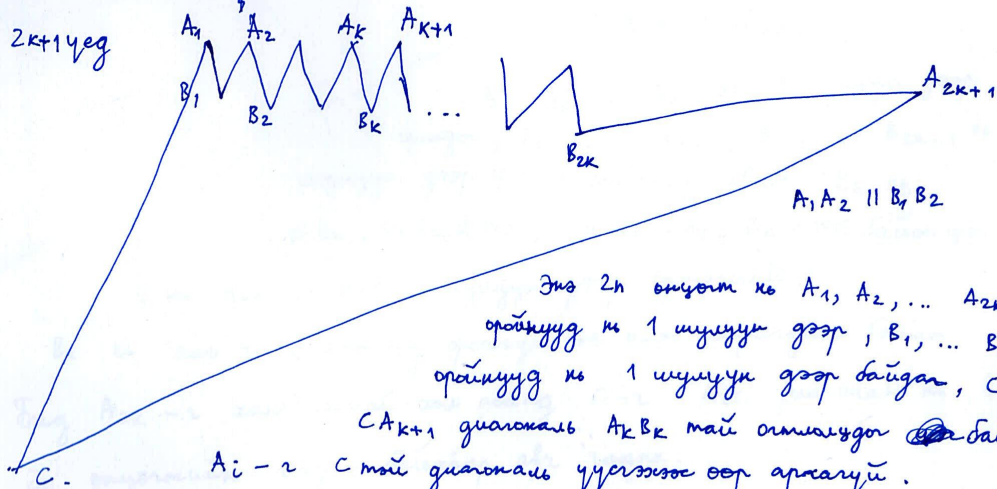 2k+1 үед
A1 A2 Ak Ak+1
B1 B2 Bk ... B2k A2k+1
A1A2 || B1B2
Энэ 2n өнцөгт нь A1, A2, ... A2k
оройнууд нь 1 шулуун дээр, B1, ... B
оройнууд нь 1 шулуун дээр байдаг, C
CAk+1 диагональ AkBk тай огтлолцдог ба
C. Ai-г C тэй диагональ үүсгэхээс өөр аргагүй.